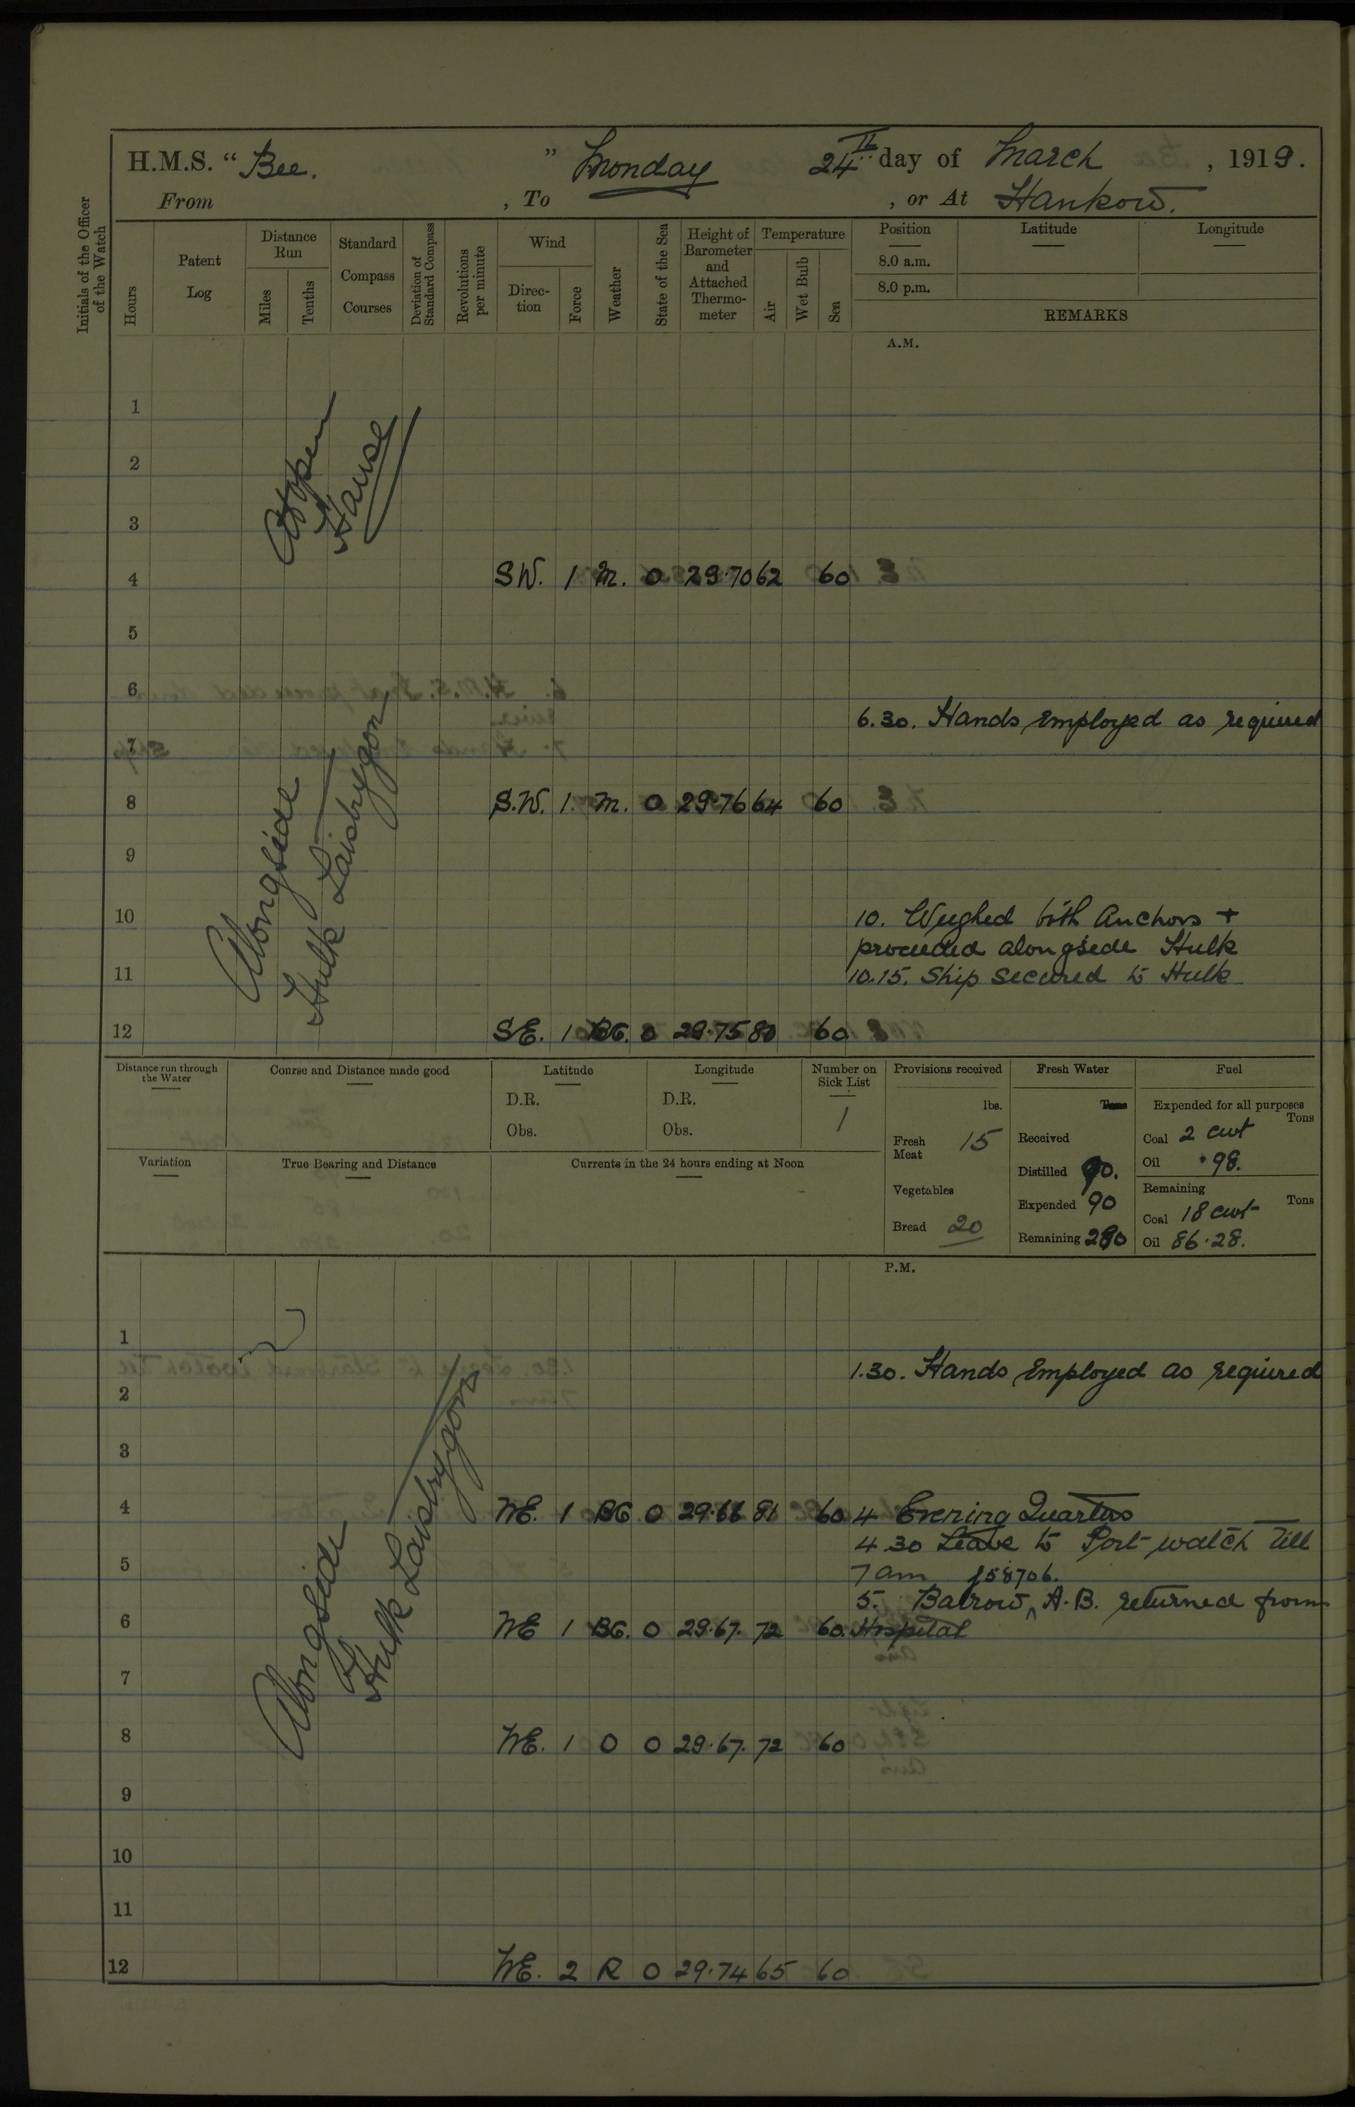 H.M.S. "Bee." Monday 24th day of March, 1919.
From , To , or At Hankow.
Initials of the Officer of the Watch
Hours
Patent Log
Distance Run
Miles
Tenths
Standard Compass Courses
Deviation of Standard Compass
Revolutions per minute
Wind
Direction
Force
Weather
State of the Sea
Height of Barometer and Attached Thermometer
Temperature
Air
Wet Bulb
Sea
Position
8.0 a.m.
8.0 p.m.
Latitude
Longitude
REMARKS
A.M.
1
2
3
At Open
Hawse
4 SW. 1 M. 0 29.70 62 60
5
6
6.30. Hands employed as required
7
8 S.W. 1. M. 0 29.76 64 60
9
Alongside
Hulk Laisbrygon
10 10. Weighed both Anchors +
proceeded alongside Hulk
11 10.15. Ship secured to Hulk
12 SE. 1 BC. 0 29.75 80 60
Distance run through the Water
Course and Distance made good
Latitude
D.R.
Obs.
Longitude
D.R.
Obs.
Number on Sick List
1
Provisions received
lbs.
Fresh Meat 15
Vegetables
Bread 20
Fresh Water
Tons
Received
Distilled 90.
Expended 90
Remaining 280
Fuel
Expended for all purposes
Tons
Coal 2 cwt
Oil .98.
Remaining
Tons
Coal 18 cwt
Oil 86.28.
Variation
True Bearing and Distance
Currents in the 24 hours ending at Noon
P.M.
1
1.30. Hands employed as required
2
3
4 NE. 1 BC 0 29.66 81 60 4 Evening Quarters
4.30 Leave to Port watch till
5 7 am J58706.
5. Barrow, A.B. returned from
6 NE 1 BC. 0 29.67. 72 60. Hospital
Alongside
Hulk Laisbrygon
7
8 NE. 1 O 0 29.67. 72 60
9
10
11
12 NE. 2 R 0 29.74 65 60